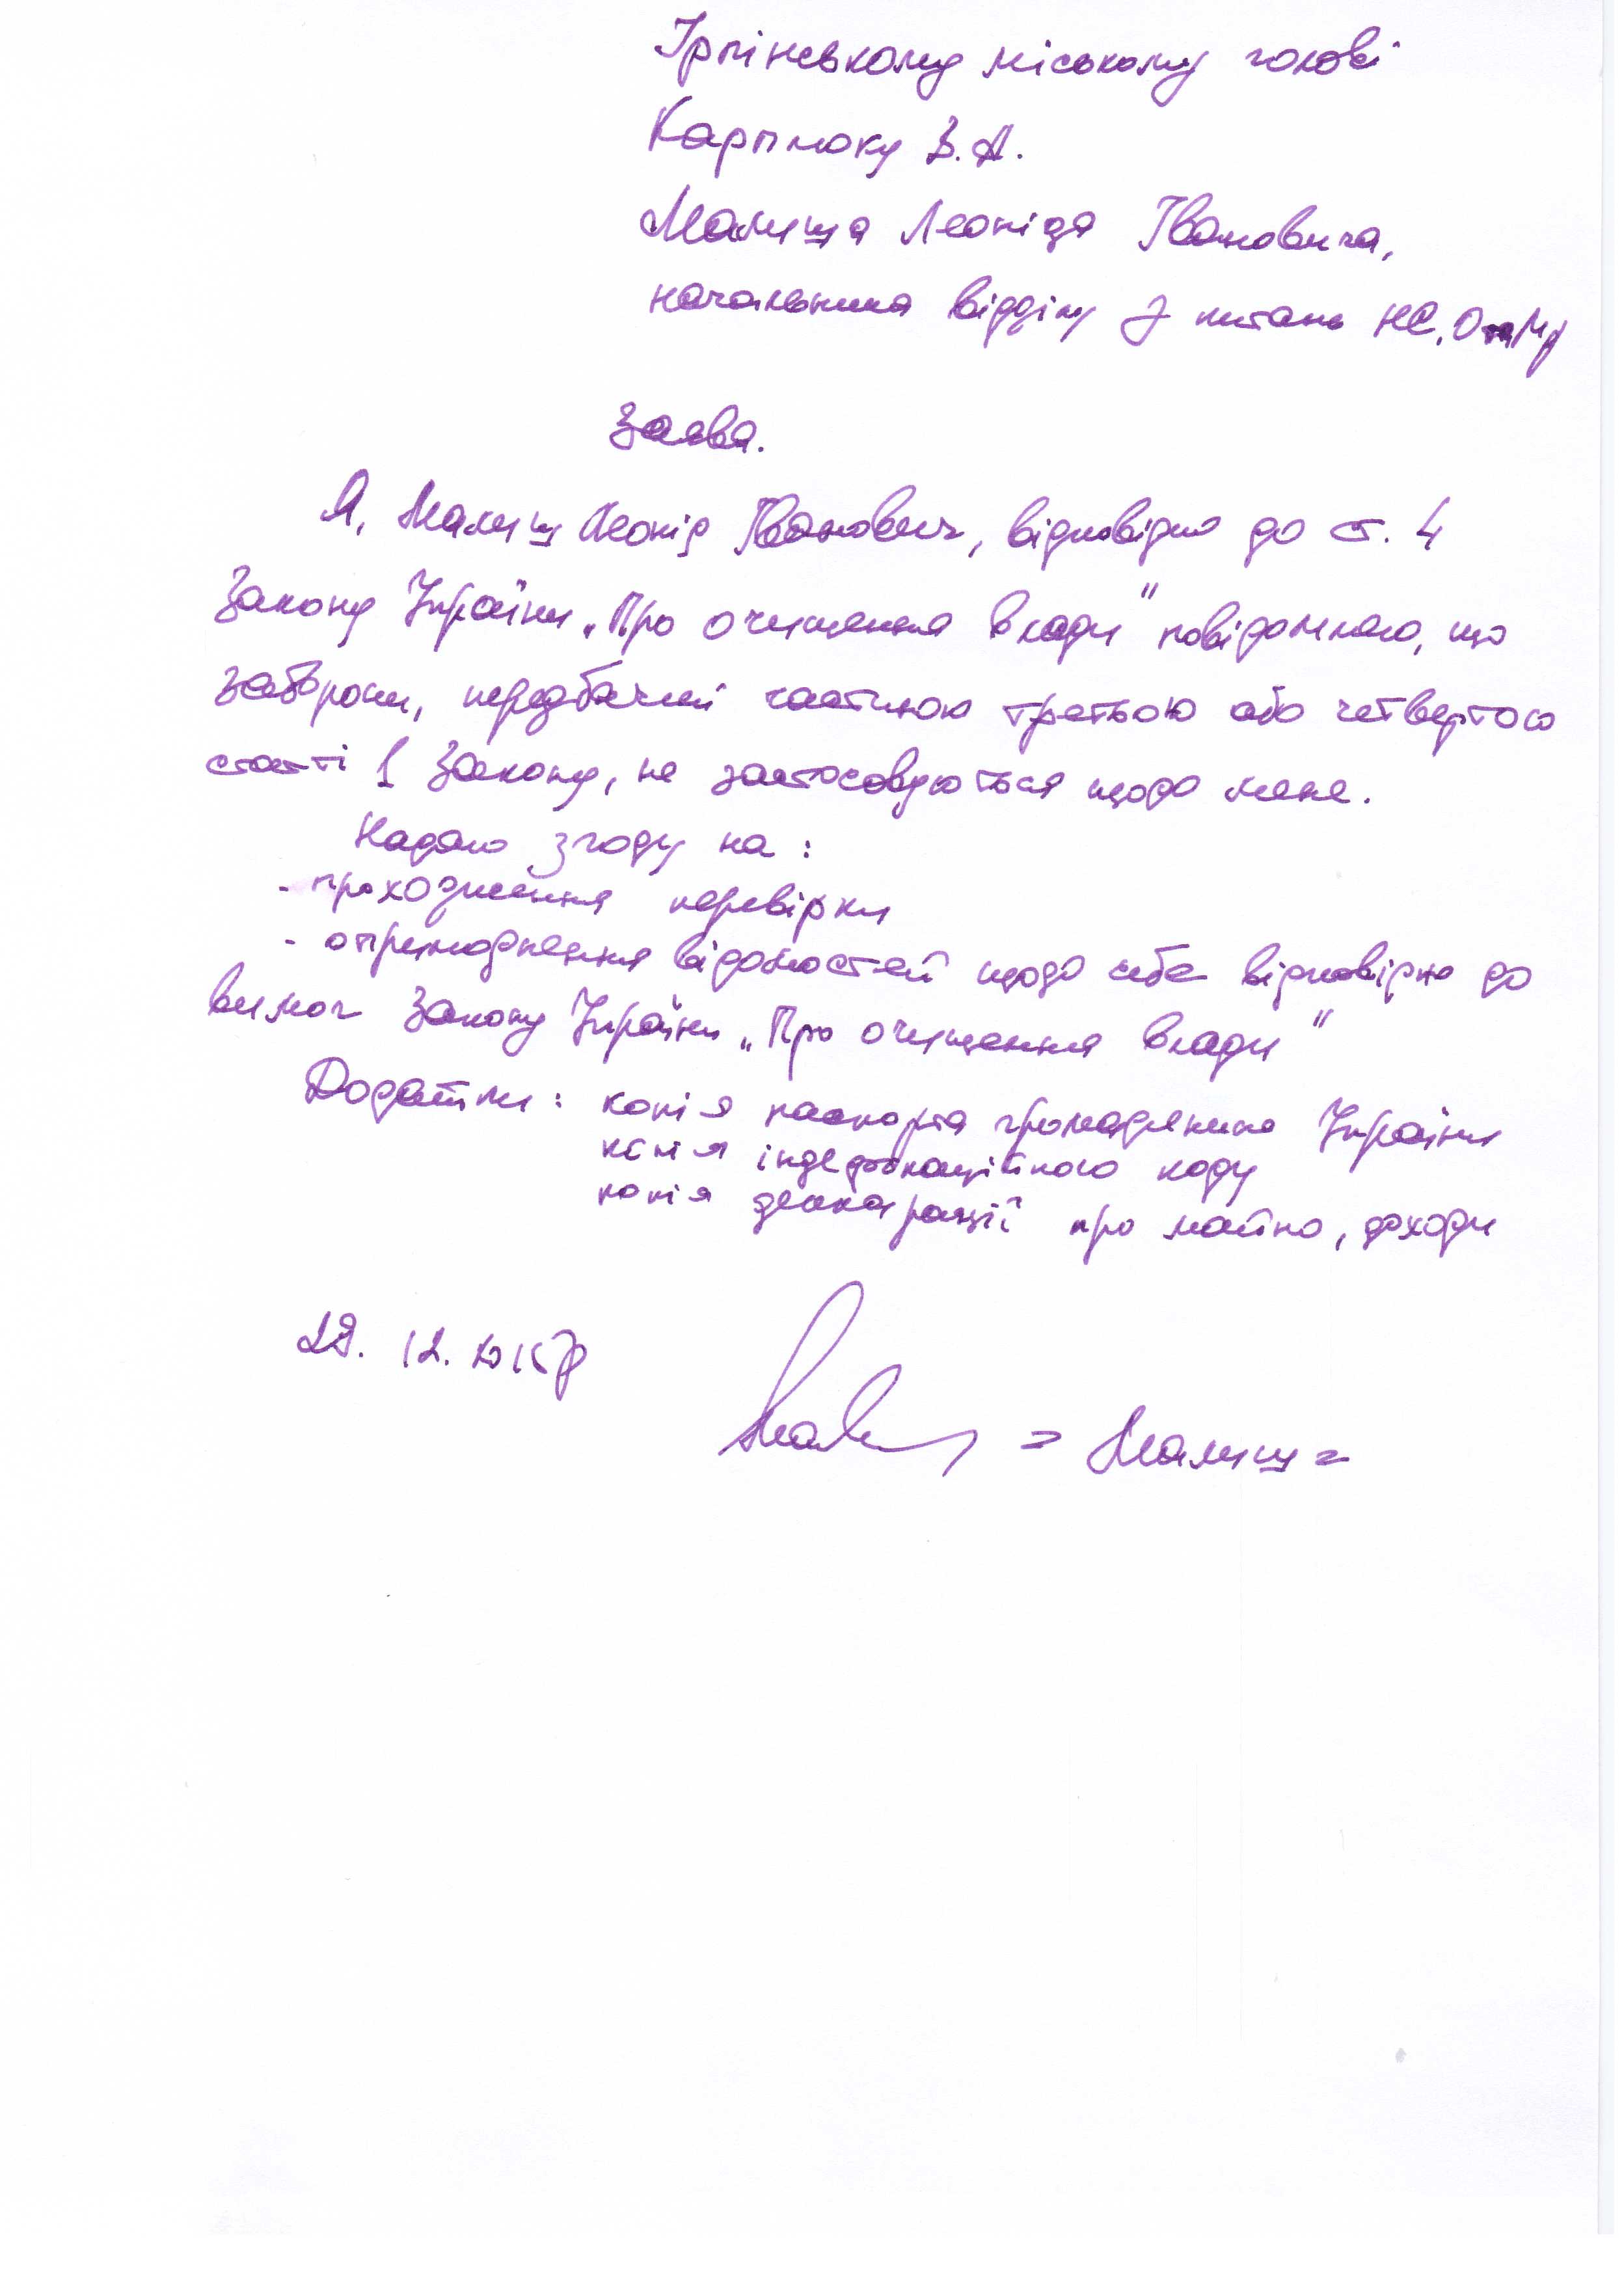 Ірпінському міському голові
Карплюку В.А.
Малища Леоніда Івановича,
начальника відділу з питань НС, О та МР
Заява.
Я, Малищ Леонід Іванович, відповідно до ст. 4
Закону України „Про очищення влади" повідомляю, що
заборони, передбачені частиною третьою або четвертою
статті 1 Закону, не застосовуються щодо мене.
Надаю згоду на:
- проходження перевірки
- оприлюднення відомостей щодо себе відповідно до
вимог Закону України „Про очищення влади"
Додатки: копія паспорта громадянина України
копія коду
копія декларації про майно, доходи
29. 12. 2015р
Малищ